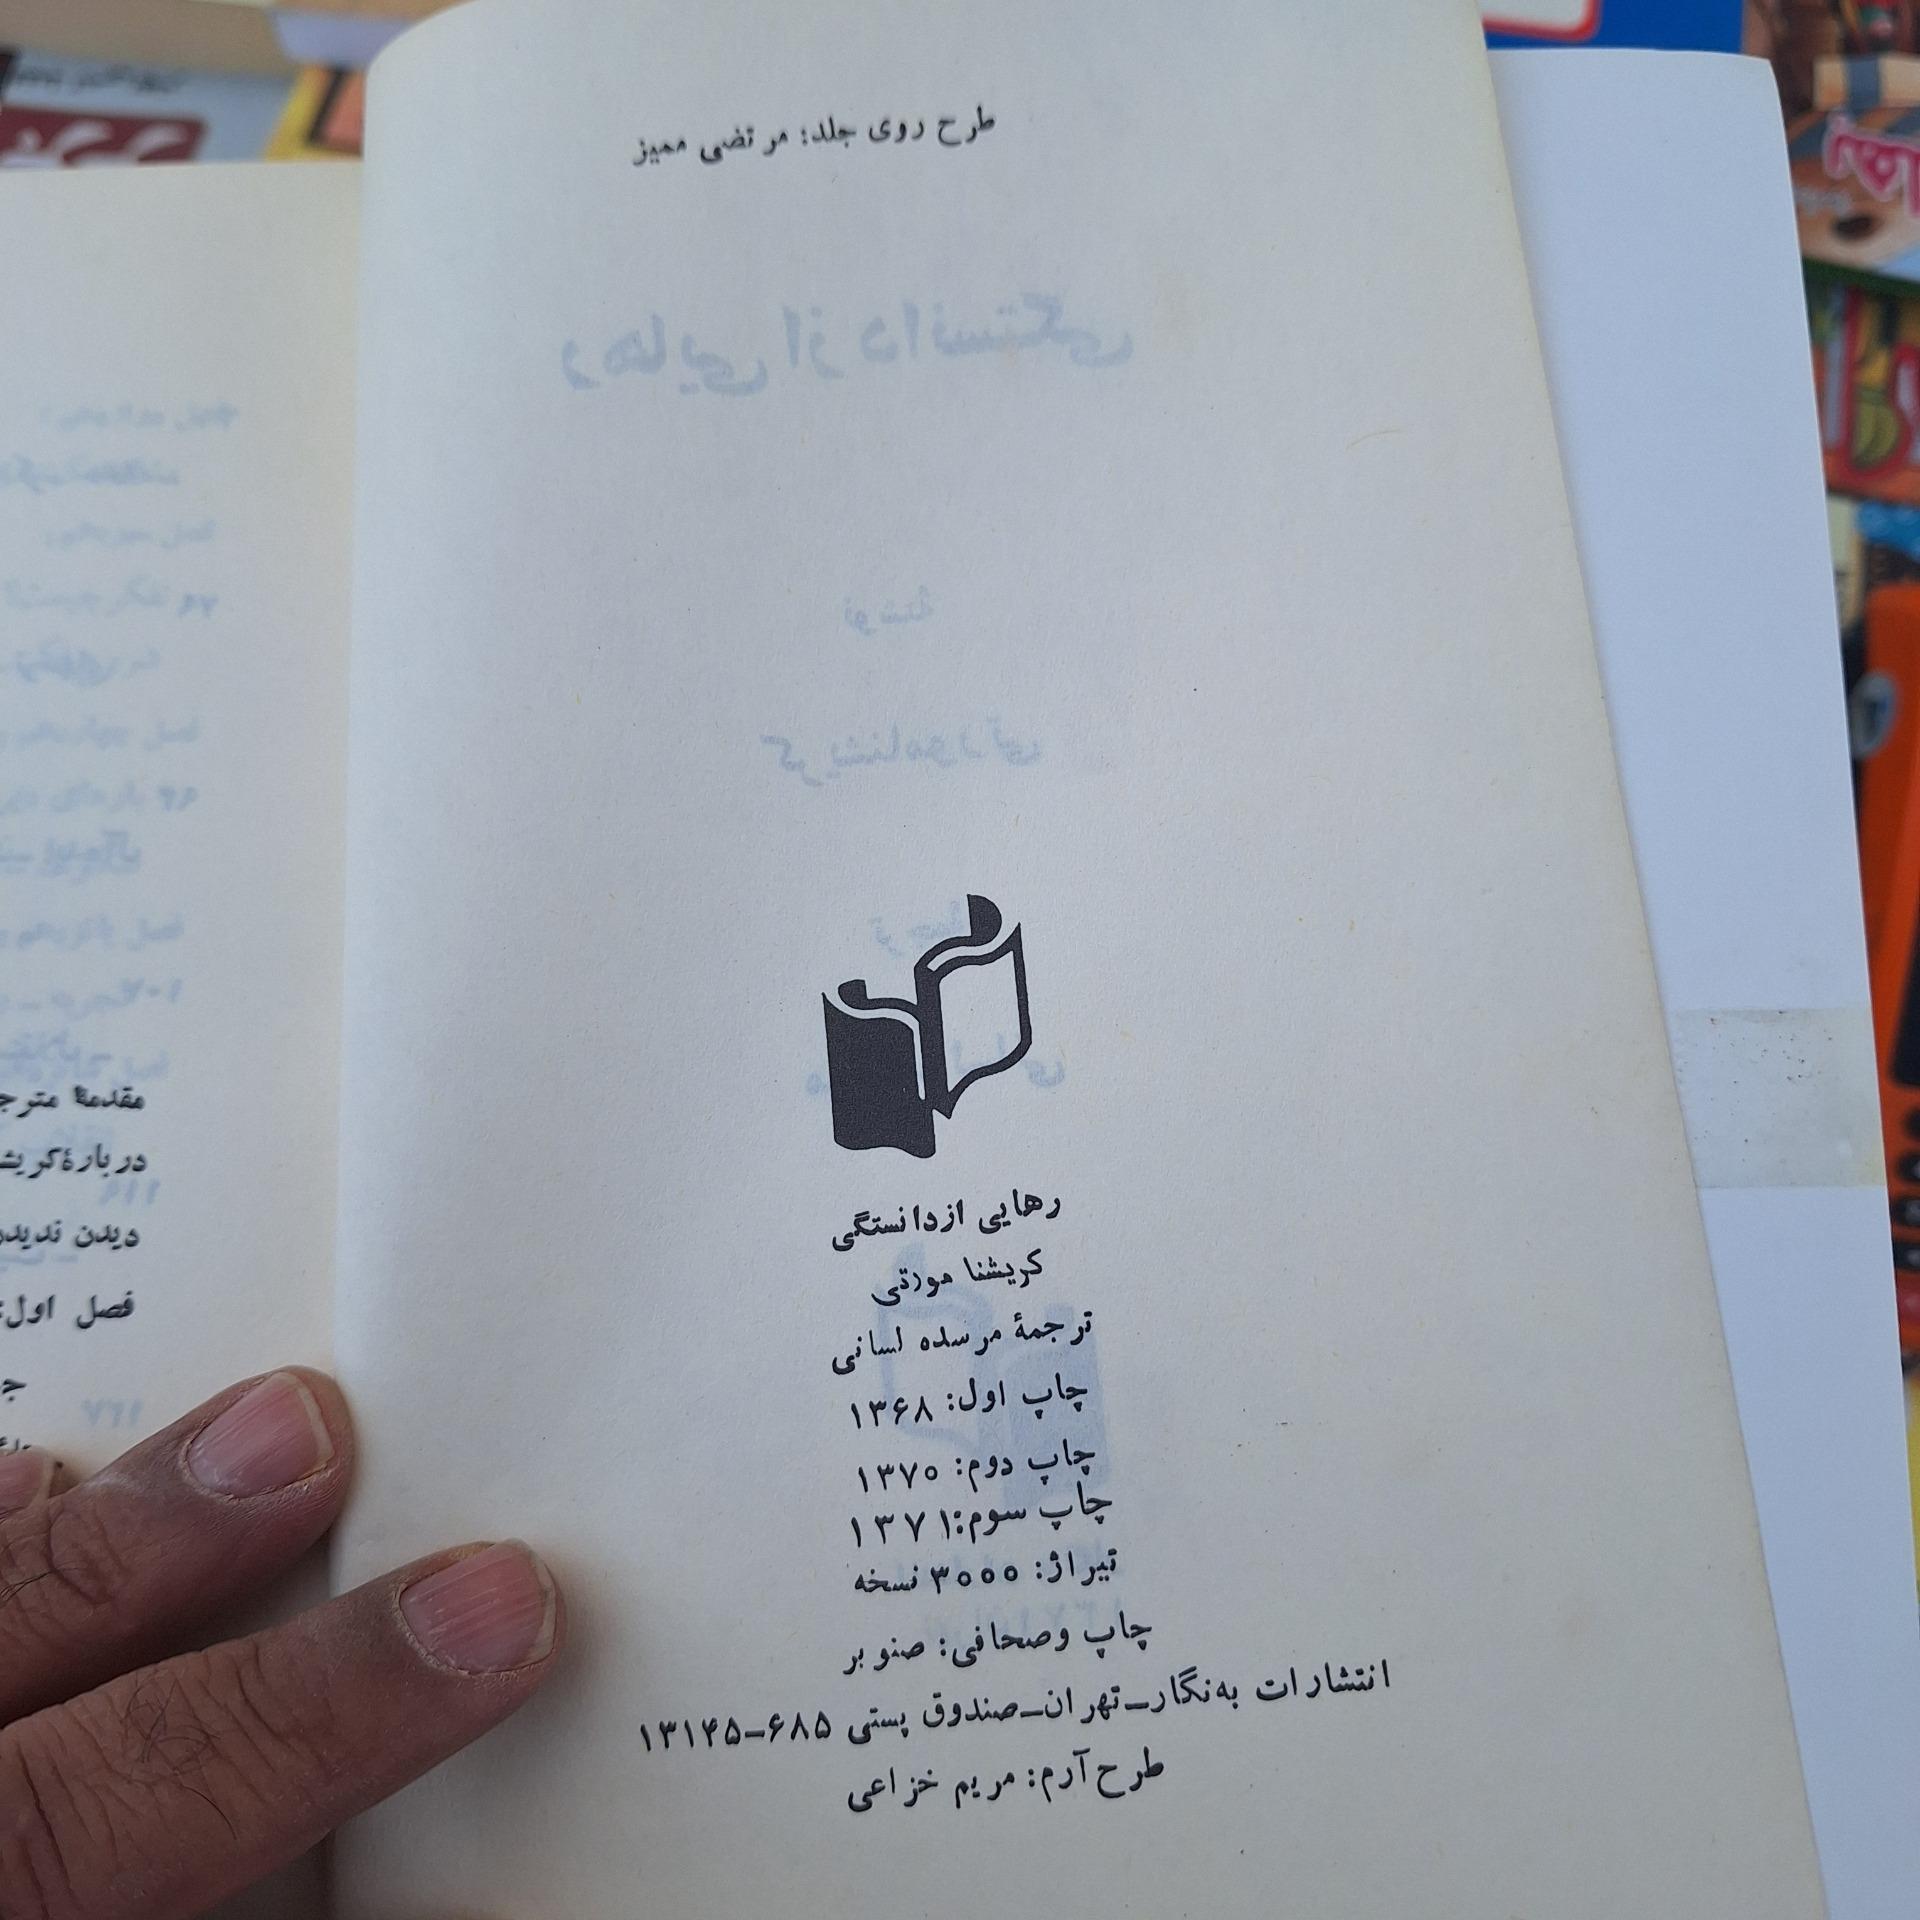 طرح روی جلد: مرتضی ممیز
رهایی از دانستگی
کریشنا مورتی
ترجمهٔ مرسده لسانی
چاپ اول: ۱۳۶۸
چاپ دوم: ۱۳۷۰
چاپ سوم: ۱۳۷۱
تیراژ: ۳۰۰۰ نسخه
چاپ وصحافی: صنوبر
انتشارات به‌نگار_تهران_صندوق پستی ۶۸۵_۱۳۱۴۵
طرح آرم: مریم خزاعی
مقدمهٔ
دربارهٔ
دیدن
فصل اول: